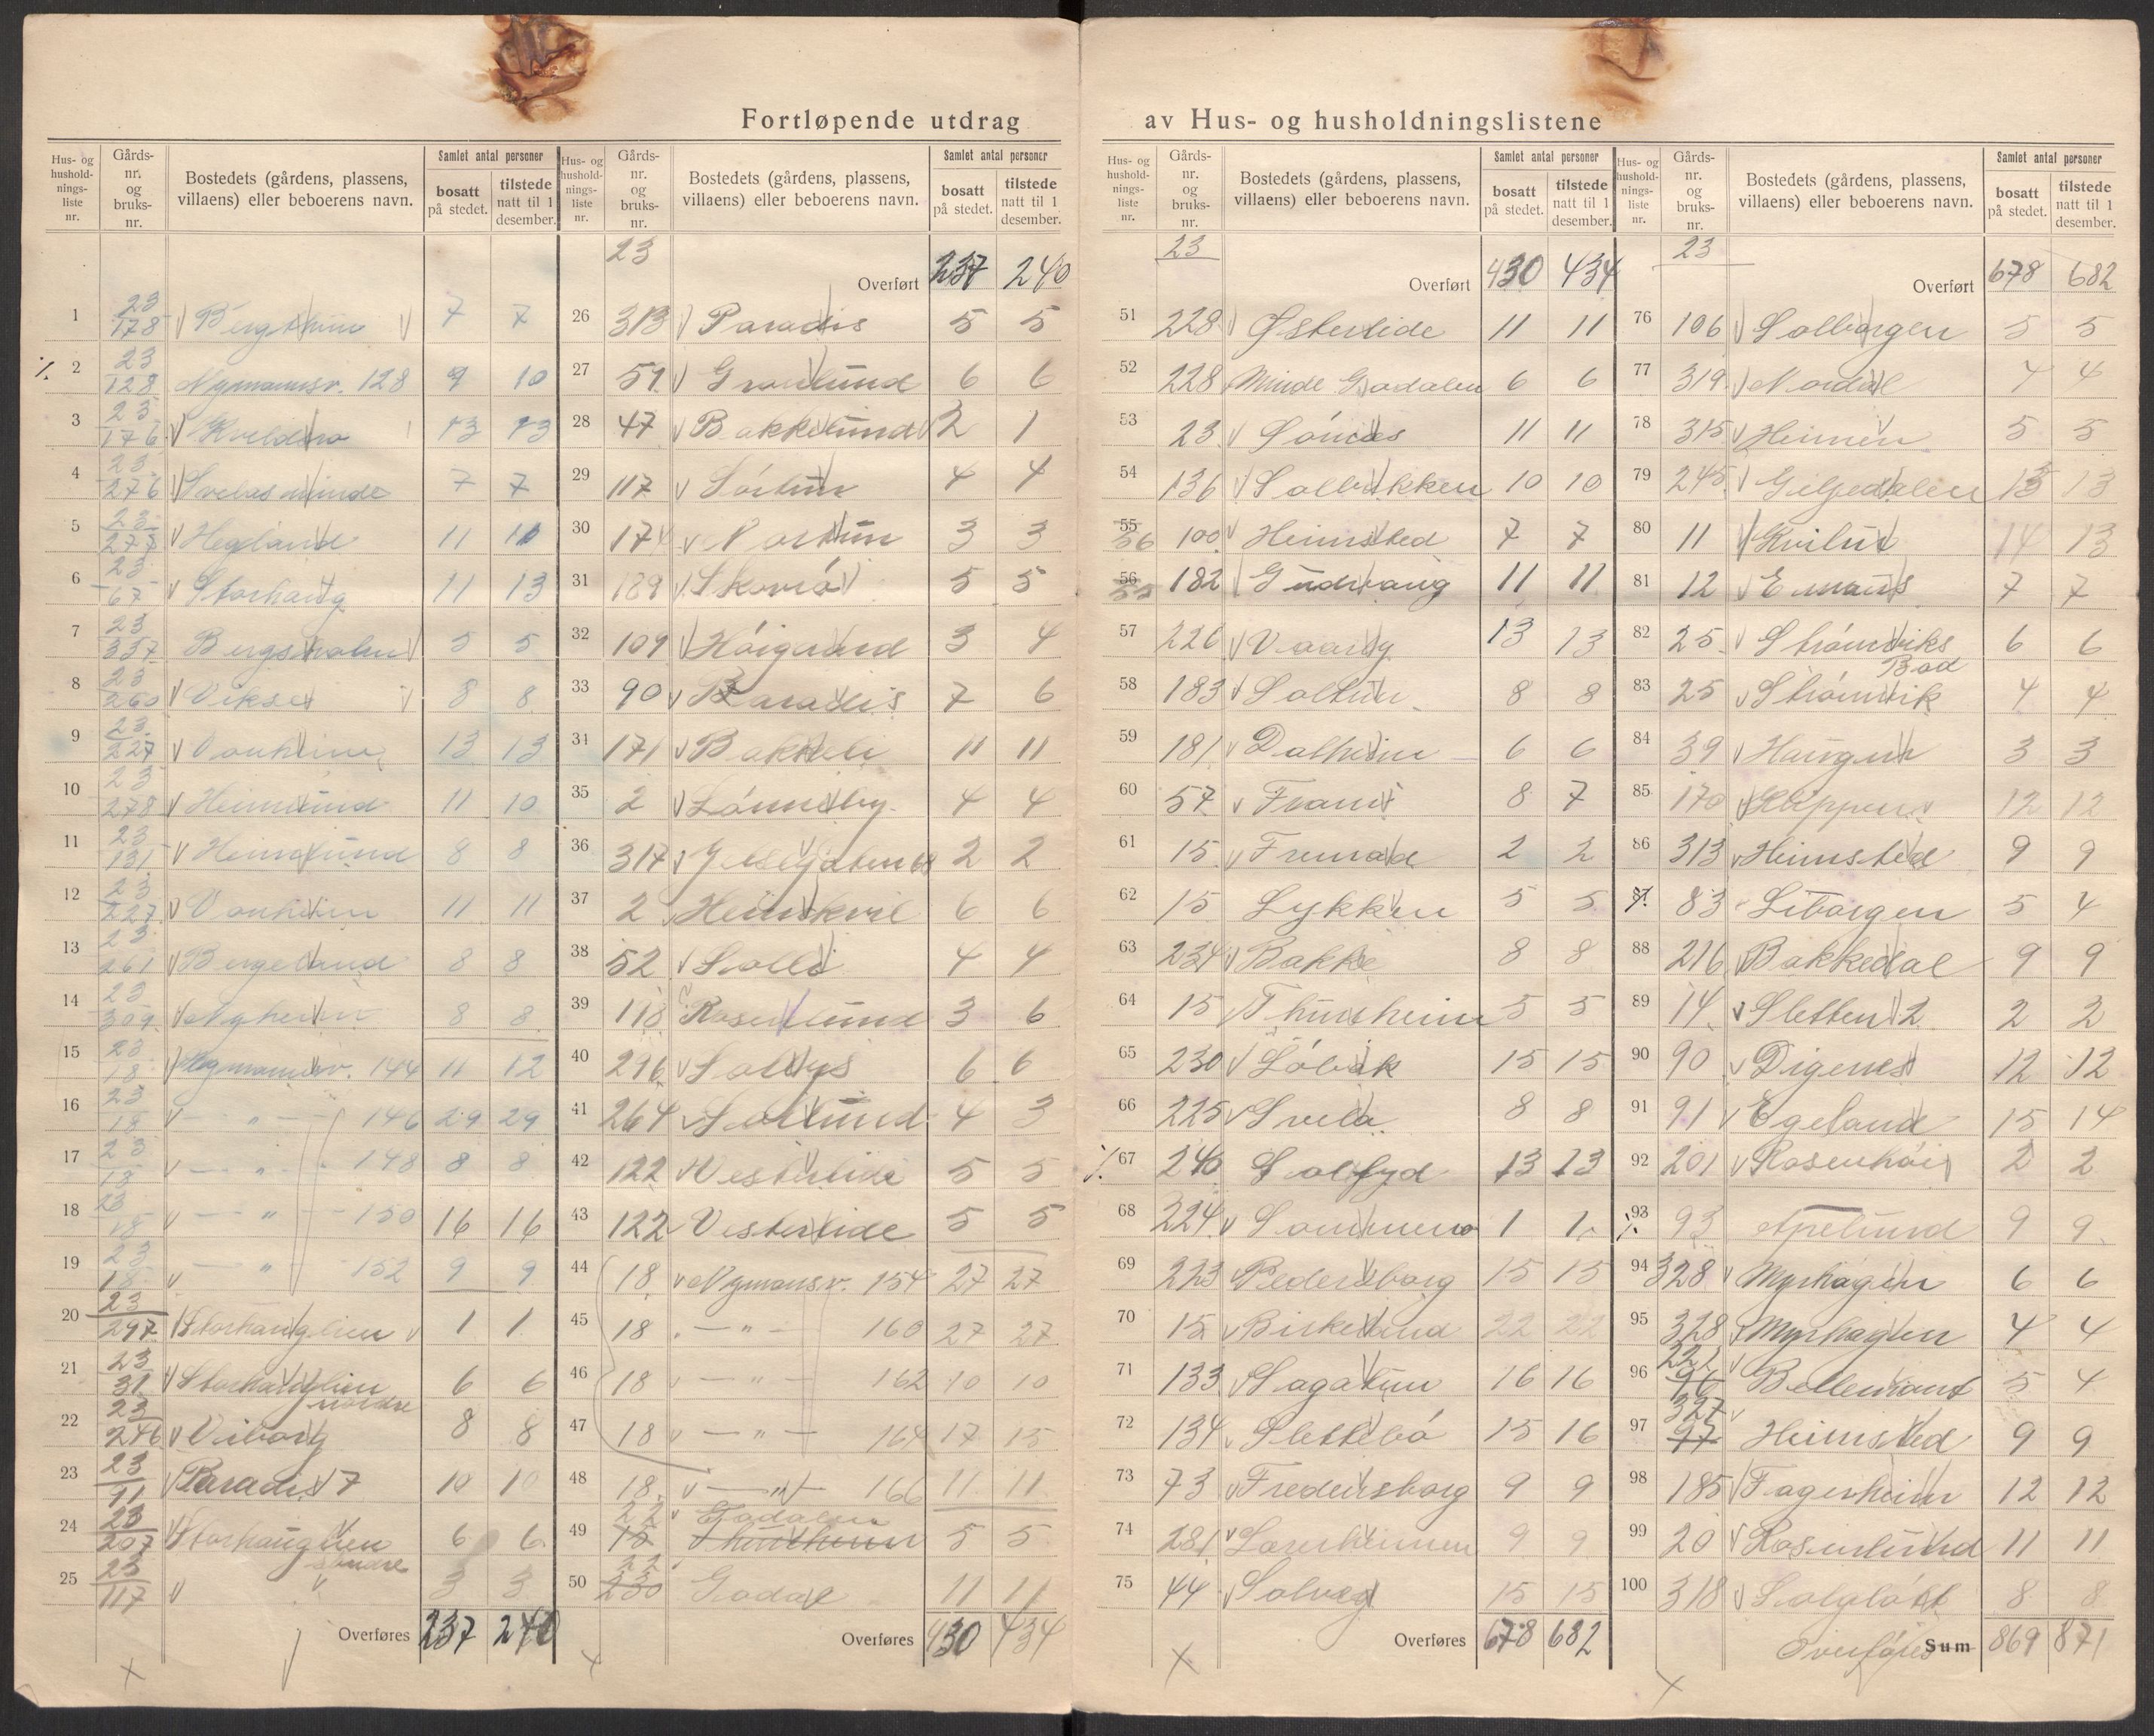 Fortløpende utdrag av Hus- og husholdningslistene
Hus- og hushold-nings-liste nr. | Gårds-nr. og bruks-nr. | Bostedets (gårdens, plassens, villaens) eller beboerens navn. | Samlet antal personer | bosatt på stedet. | tilstede natt til 1 desember.
1 23/178 Bergthun 7 7
2 23/128 Nymannsv. 128 9 10
3 23/176 Kveldsro 13 13
4 23/276 Svelas minde 7 7
5 23/277 Hegeland 11 10
6 23/67 Storhaug 11 13
7 23/337 Bergsholm 5 5
8 23/260 Vikse 8 8
9 23/227 Vonheim 13 13
10 23/278 Heimlund 11 10
11 23/131 Heimlund 8 8
12 23/227 Vonheim 11 11
13 23/261 Bergeland 8 8
14 23/309 Nyheim 8 8
15 23/18 Nymannsv. 144 11 12
16 23/18 — " — 146 29 29
17 23/18 — " — 148 8 8
18 23/18 — " — 150 16 16
19 23/18 — " — 152 9 9
20 23/297 Storhauglien 1 1
21 23/31 Storhauglien nordre 6 6
22 23/246 Viborg 8 8
23 23/91 Paradis 7 10 10
24 23/207 Storhauglien søndre 6 6
25 23/117 " 3 3
Overføres 237 240
Hus- og hushold-nings-liste nr. | Gårds-nr. og bruks-nr. | Bostedets (gårdens, plassens, villaens) eller beboerens navn. | Samlet antal personer | bosatt på stedet. | tilstede natt til 1 desember.
23 Overført 237 240
26 313 Paradis 5 5
27 51 Grønlund 6 6
28 47 Bakkelund 2 1
29 117 Sørtun 4 4
30 174 Nortun 3 3
31 189 Skovrø 5 5
32 109 Høigaard 3 4
33 90 Paradis 7 6
34 171 Bakkeli 11 11
35 2 Lønneby 4 4
36 317 Gjelsgaten 68 2 2
37 2 Heimskvil 6 6
38 52 Solli 4 4
39 118 Rosenlund 3 6
40 296 Sollys 6 6
41 264 Sollund 4 3
42 122 Vesterlide 5 5
43 122 Vesterlide 5 5
44 18 Nymansv. 154 27 27
45 18 — " — 160 27 27
46 18 — " — 162 10 10
47 18 — " — 164 17 15
48 18 — " — 166 11 11
49 22 15 Godalen Thunheim 5 5
50 22 230 Godal 11 11
Overføres 430 434
Hus- og hushold-nings-liste nr. | Gårds-nr. og bruks-nr. | Bostedets (gårdens, plassens, villaens) eller beboerens navn. | Samlet antal personer | bosatt på stedet. | tilstede natt til 1 desember.
23 Overført 430 434
51 228 Østerlide 11 11
52 228 Minde Godalen 6 6
53 23 Sønnes 11 11
54 136 Solbakken 10 10
55 56 100 Heimsted 7 7
56 55 182 Gudvang 11 11
57 226 Vaarly 13 13
58 183 Soltun 8 8
59 181 Dalheim 6 6
60 57 Framt 8 7
61 15 Fremad 2 2
62 15 Lykken 5 5
63 234 Bakke 8 8
64 15 Thunheim 5 5
65 230 Løbak 15 15
66 225 Svela 8 8
67 240 Solfyd 13 13
68 224 Sommero 1 1
69 223 Pedersborg 15 15
70 15 Birkelund 22 22
71 133 Sagatun 16 16
72 134 Slettebø 15 16
73 73 Fredriksborg 9 9
74 281 Larsheimen 9 9
75 44 Solveg 15 15
Overføres 678 682
Hus- og hushold-nings-liste nr. | Gårds-nr. og bruks-nr. | Bostedets (gårdens, plassens, villaens) eller beboerens navn. | Samlet antal personer | bosatt på stedet. | tilstede natt til 1 desember.
23 Overført 678 682
76 106 Solborgen 5 5
77 319 Nordal 4 4
78 315 Heimen 5 5
79 245 Gilsedalen 13 13
80 11 Kvilut 14 13
81 12 Emaus 7 7
82 25 Strømviks Bad 6 6
83 25 Strømvik 4 4
84 39 Haugen 3 3
85 170 Klippen 12 12
86 313 Heimsted 9 9
87 83 Liborgen 5 4
88 216 Bakkedal 9 9
89 14 Sletten 2 2 2
90 90 Digernes 12 12
91 91 Egeland 15 14
92 201 Rosenhøi 2 2
93 93 Apelund 9 9
94 328 Myrhagen 6 6
95 328 Myrhagen 4 4
96 222 96 Belleviant 5 4
97 327 97 Heimsted 9 9
98 185 Fagerheim 12 12
99 20 Rosenlund 11 11
100 318 Solgløtt 8 8
Overføres Sum 869 871